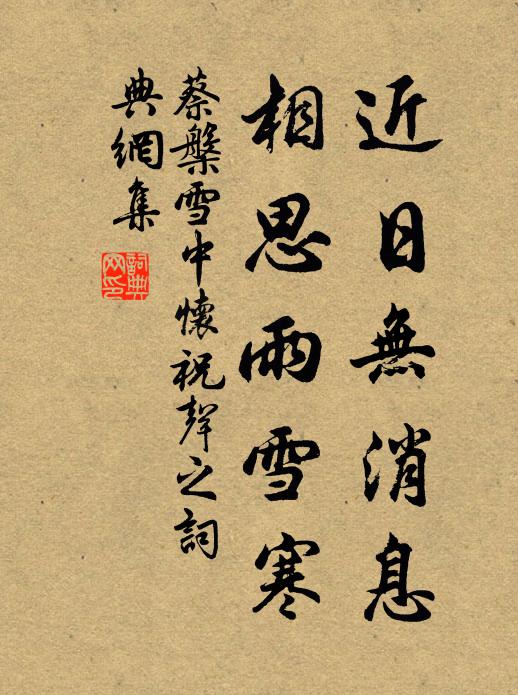 近日無消息
相思雨雪寒
蔡槃雪中懷祝聲之詞
典網集
詞典
网印